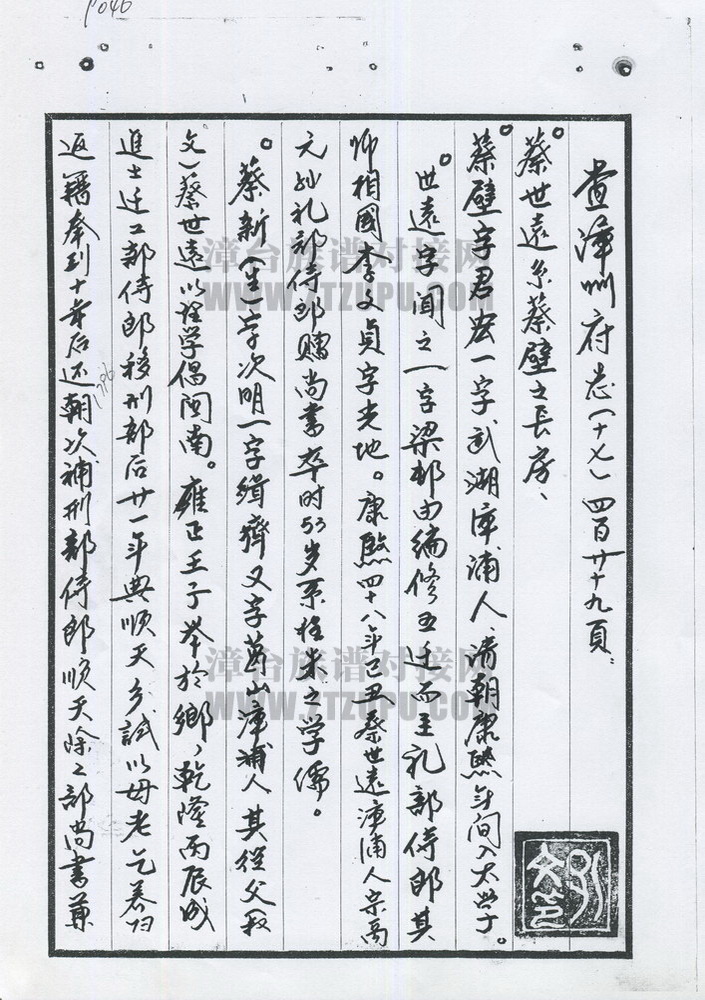 P046
查漳州府志（十七）四百廿十九頁：
蔡世遠系蔡壁之長房、
蔡壁字君宏一字武湖漳浦人、清朝康熙年间入太学。
世遠字闻之一字梁邨由编修五迁而至礼部侍郎其
师相國李文贞字光地。康熙四十八年己丑蔡世遠漳浦人宗高
元孙礼部侍郎赠尚書卒时53岁系程朱之学儒。
蔡新（生）字次明一字缉齋又字葛山漳浦人其從父（叔
文）蔡世遠以理学倡闽南。雍正壬子举於鄉、乾隆丙辰成
進士迁工部侍郎移刑部后廿一年典顺天乡試以母老乞养归
返籍奉到十年后还朝次補刑部侍郎顺天除工部尚書兼
1796
漳台族谱对接网
WWW.ZTZUPU.COM
漳台族谱对接网
WWW.ZTZUPU.COM